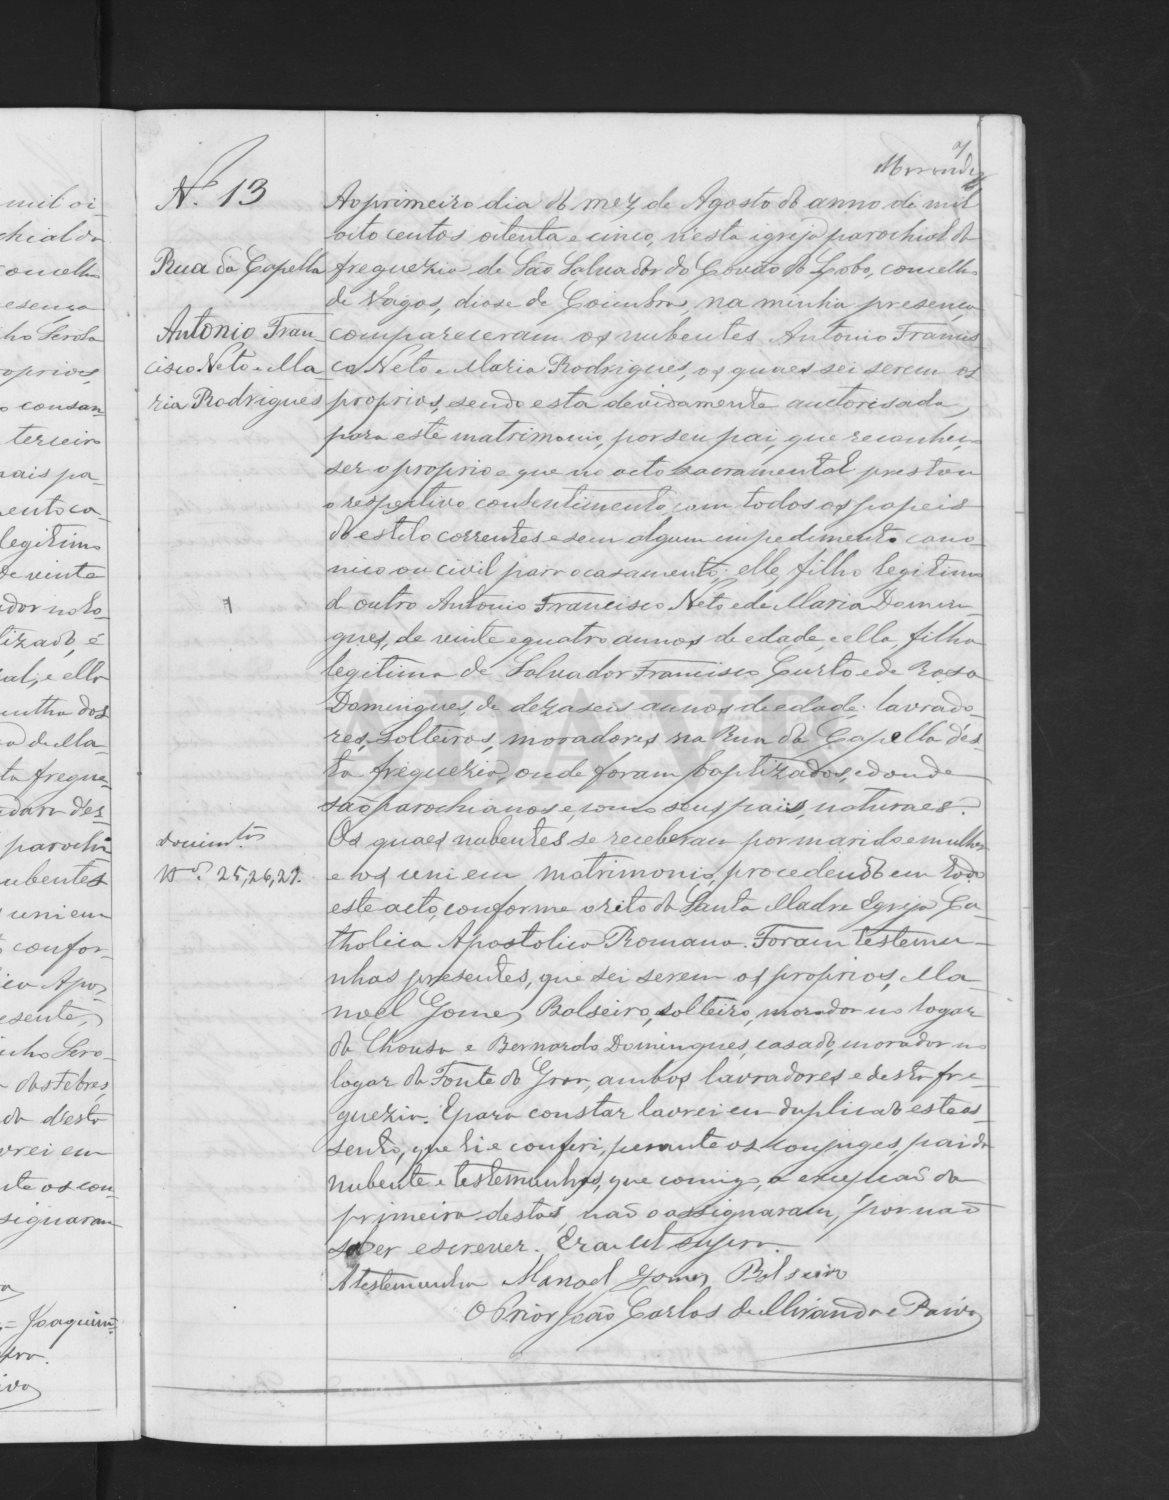 7
Miranda
N.º 13
Rua da Capella
Antonio Fran-
cisco Neto e Ma-
ria Rodrigues
Ao primeiro dia do mez de Agosto do anno de mil
oito centos oitenta e cinco, n'esta igreja parochial da
freguezia de São Salvador do Covão do Lobo, concelho
de Vagos, diose de Coimbra, na minha presença
compareceram os nubentes Antonio Francis
co Neto e Maria Rodrigues, os quaes sei serem os
proprios, sendo esta devidamente auctorisada,
para este matrimonio, por seu pai, que reconheço
ser o proprio e que no acto sacramental prestou
o respectivo consentimento, com todos os papeis
do estilo correntes e sem algum impedimento cano-
nico ou civil para o casamento; elle, filho legitimo
d outro Antonio Francisco Neto e de Maria Domin-
gues, de vinte e quatro annos de edade, e ella, filha
legitima de Salvador Francisco Curto e de Rosa
Domingues, de dezaseis annos de edade; lavrado-
res, solteiros, moradores na Rua da Capella d'es-
ta freguezia, onde foram baptizados, e donde
são parochianos e, como seus pais, naturaes.
Os quaes nubentes se receberam por marido e mulher
e os uni em matrimonio, procedendo em todo
este acto, conforme o rito da Santa Madre Egreja Ca-
tholica Apostolica Romana. Foram testemu-
nhas presentes, que sei serem os proprios, Ma-
noel Gomes Balseiro, solteiro, morador no logar
da Chousa e Bernardo Domingues, casado, morador no
logar da Fonte do Grou, ambos lavradores e desta fre-
guezia. E para constar lavrei em duplicado este as-
sento, que li e conferi, perante os conjuges, pai da
nubente e testemunhas, que comigo, a excepcão da
primeira destas, não o assignaram, por não
saber escrever. Era ut supra.
A testemunha Manoel Gomes Balseiro
O Prior João Carlos de Miranda e Paiva
docum.tos
N.os 25, 26, 27.
ADAVR